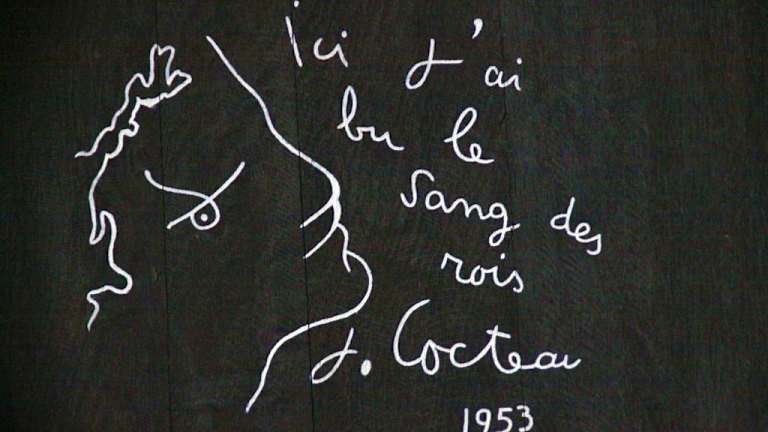 Ici J'ai
bu le
sang des
rois
J. Cocteau
1953